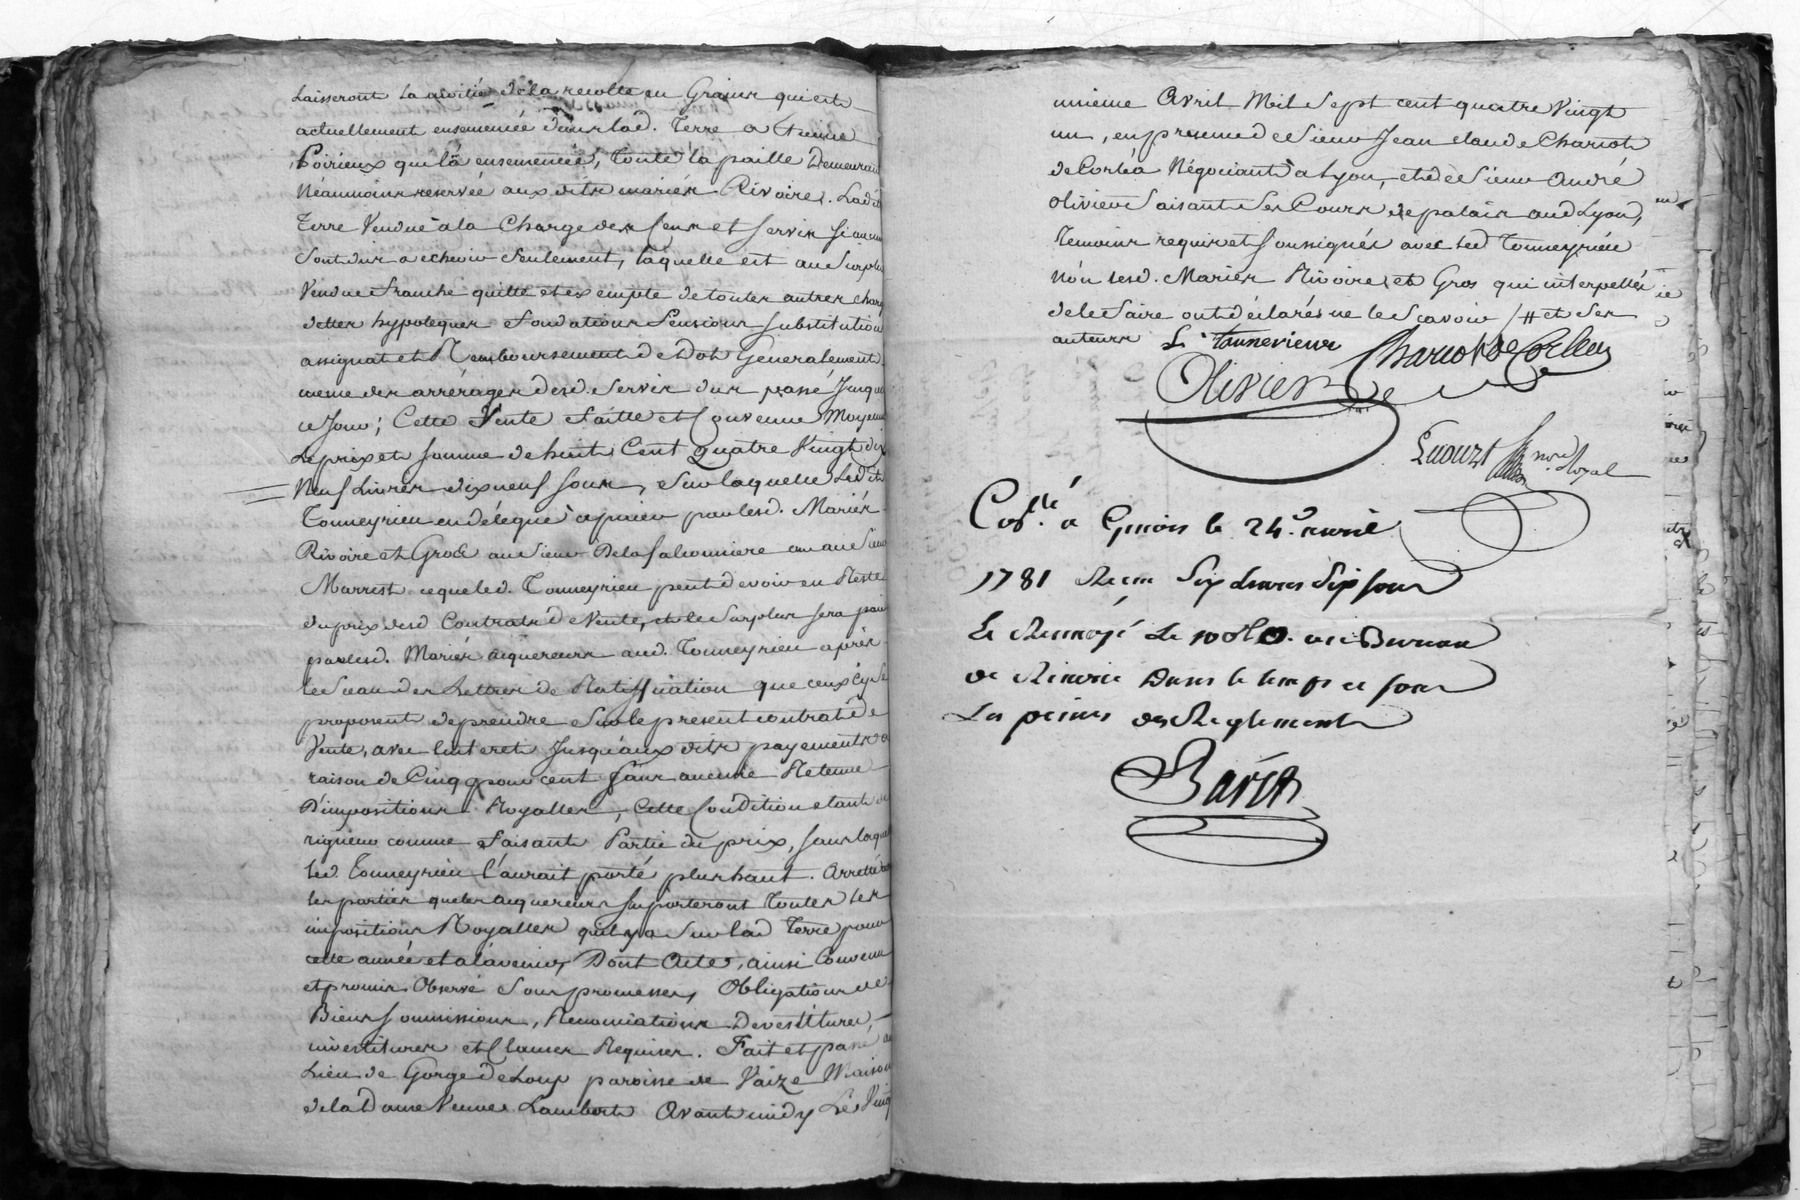 Laisseront la moitié de la recolte en Grains qui est
actuellement ensemencée dans lad. Terre a Etienne
Poirieux qui l'a ensemencée, toute la paille Demeurant
Néanmoins reservée aux dits mariés Rivoire. Ladite
Terre Vendue à la Charge des Cens et servis si aucuns
sont dus a echevir seulement, laquelle est au surplus
Vendue franche quitte et exempte de toutes autres charges
dettes hypoteques fondations Pensions substitutions
assignat et Remboursement de dot Generalement
meme des arrérages desd. servis du passé jusqua
ce jour; Cette Vente faitte et Convenue Moyennant
Le prix et somme de huit Cent Quatre Vingt dix
Neuf Livres dix neuf sous, sur laquelle Ledit
Tonneyrieu en délegue à payer par lesd. Mariés
Rivoire et Gros au sieur Delafalconniere ou au sieur
Marrest ce que led. Tonneyrieu peut devoir en Reste
du prix desd Contrats de Vente, et le surplus sera payé
par lesd. Mariés aquereurs aud. Tonneyrieu après
le sceau des Lettres de Ratiffication que ceux cy se
proposent de prendre sur le present contrat de
Vente, avec l'interet jusqu'aux dits payements a
raison de Cinq pour cent sans aucune Retenue
D'impositions Royalles, cette Condition etant de
rigueur comme faisant Partie du prix, sans laquelle
led. Tonneyrieu l'aurait porté plus haut. Arretté
les parties que les aquereurs supporteront toutes les
impositions Royalles qu'il y a sur lad Terre pour
cette année et a l'avenir, Dont Acte, ainsi Convenu
et promis Observé sous promesses, Obligations de
Biens soumissions, Renonciations Devestitures,
investitures et Clauses Requises. Fait et passé au
Lieu de Gorge de Loup paroisse de Vaize Maison
de la Dame Veuve Lambert Avant midy Le Vingt
unieme Avril Mil sept cent quatre Vingt
un, en presence de sieur Jean claude Chariot
de Corléa Négociant à Lyon, et de sieur André
Olivier faisant ses Cours de palais aud Lyon,
Temoins requis et soussignés avec led Tonneyrieu
non lesd. Mariés Rivoire et Gros qui interpellés
de le faire ont déclarés ne le scavoir /# et ses
auteurs
Chariot de Corlea
Olivier
nore Royal
Conlle. a le 24. avril
1781 Recu six livres dix sous
Le Renvoyé au Bureau
de Dans le temps et sous
Les peines des Reglements